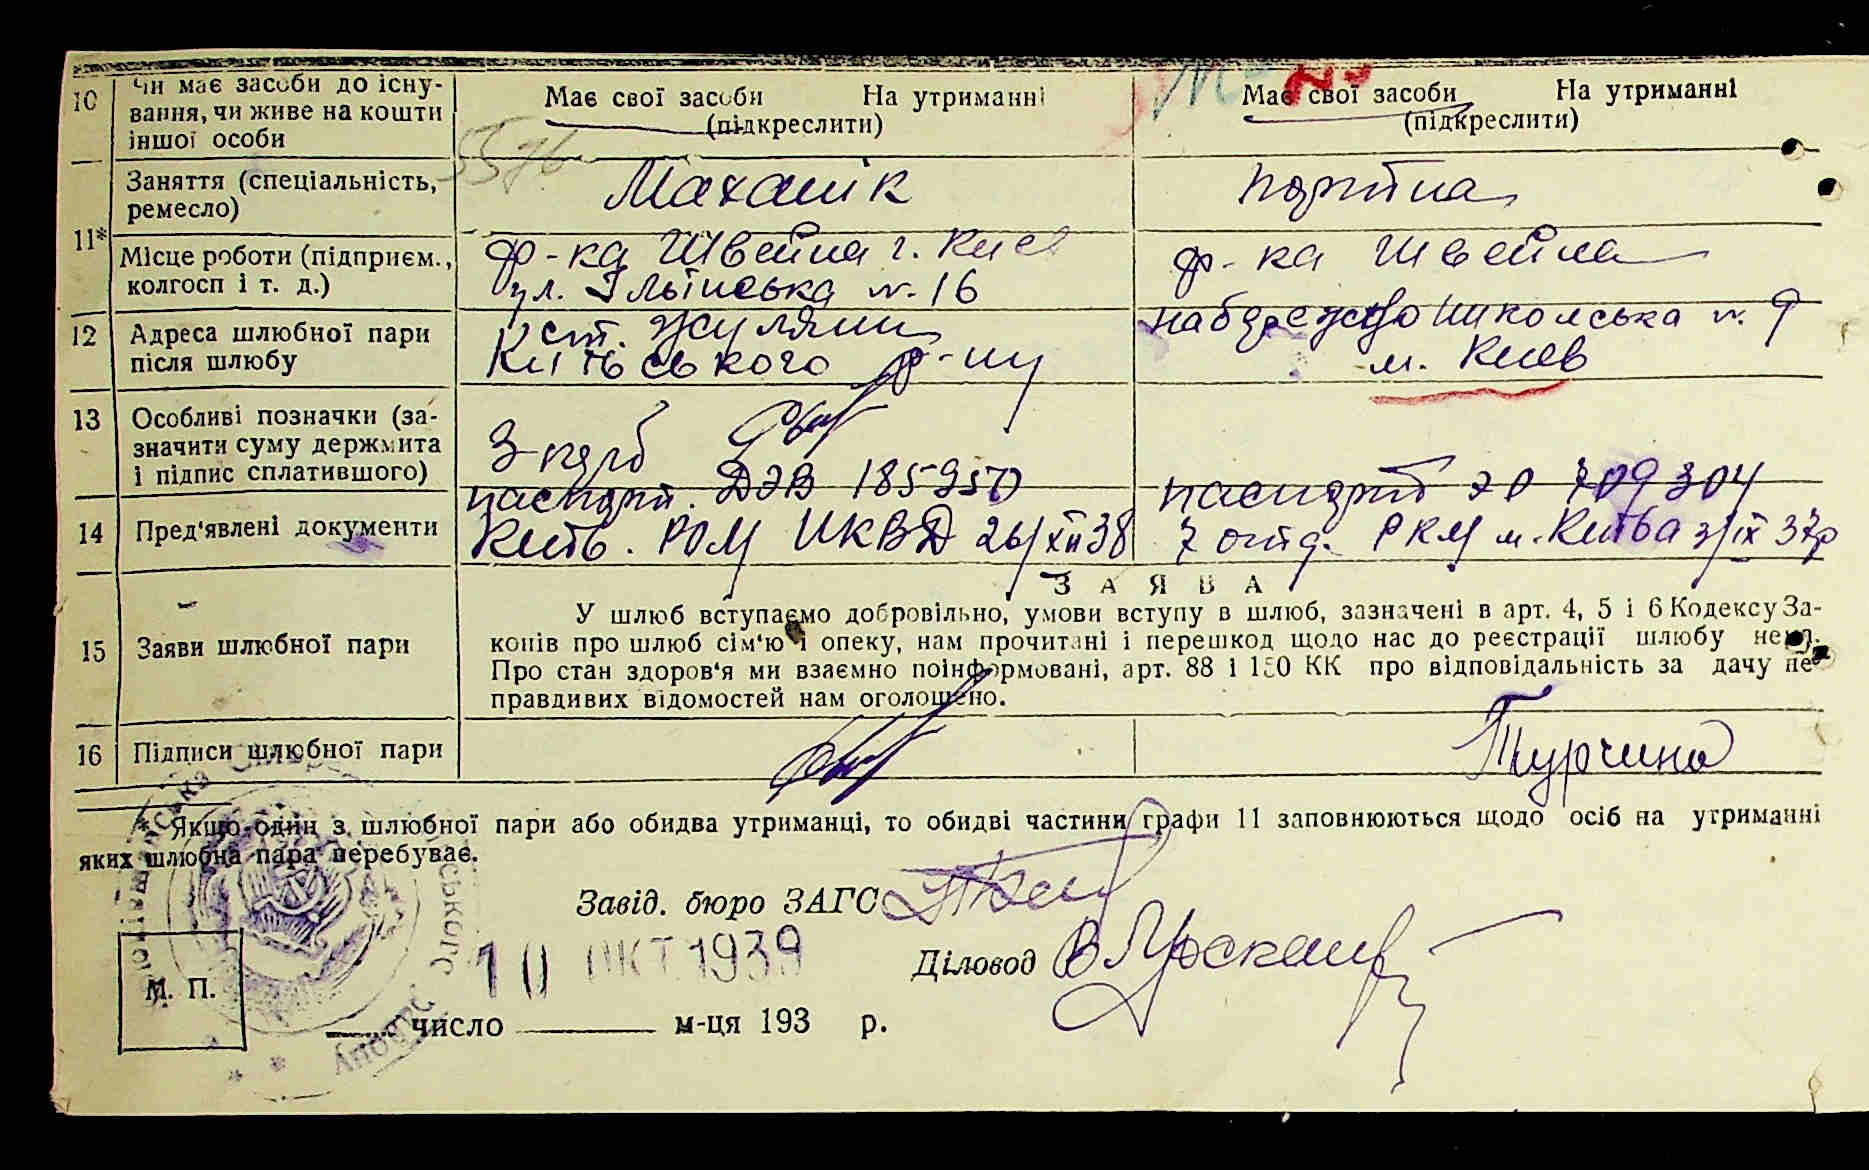 10 Чи має засоби до існу-
вання, чи живе на кошти
іншої особи
Має свої засоби На утриманні
(підкреслити)
Має свої засоби На утриманні
(підкреслити)
5576
11* Заняття (спеціальність,
ремесло)
Механік
портна
Місце роботи (підприєм.,
колгосп і т. д.)
ф-ка Швейна г. Киев
ул. Ільінська №. 16
ф-ка Швейна
12 Адреса шлюбної пари
після шлюбу
ст. Жуляни
Київського р-ну
Школьська №. 9
м. Киев
13 Особливі позначки (за-
значити суму держмита
і підпис сплатившого)
3-карб
14 Пред'явлені документи
паспорт. ДЭВ 185950
Київ. РОМ НКВД 26/XII 38
паспорт 709304
7 отд. РКМ м. Київа 3/IX 37р
15 Заяви шлюбної пари
ЗАЯВА
У шлюб вступаємо добровільно, умови вступу в шлюб, зазначені в арт. 4, 5 і 6 Кодексу За-
конів про шлюб сім'ю і опеку, нам прочитані і перешкод щодо нас до реєстрації шлюбу нема.
Про стан здоров'я ми взаємно поінформовані, арт. 88 і 150 КК про відповідальність за дачу не
правдивих відомостей нам оголошено.
16 Підписи шлюбної пари
Турчина
* Якщо один з шлюбної пари або обидва утриманці, то обидві частини графи 11 заповнюються щодо осіб на утриманні
яких шлюбна пара перебуває.
Завід. бюро ЗАГС
10 ОКТ 1939
Діловод
М. П.
число м-ця 193 р.